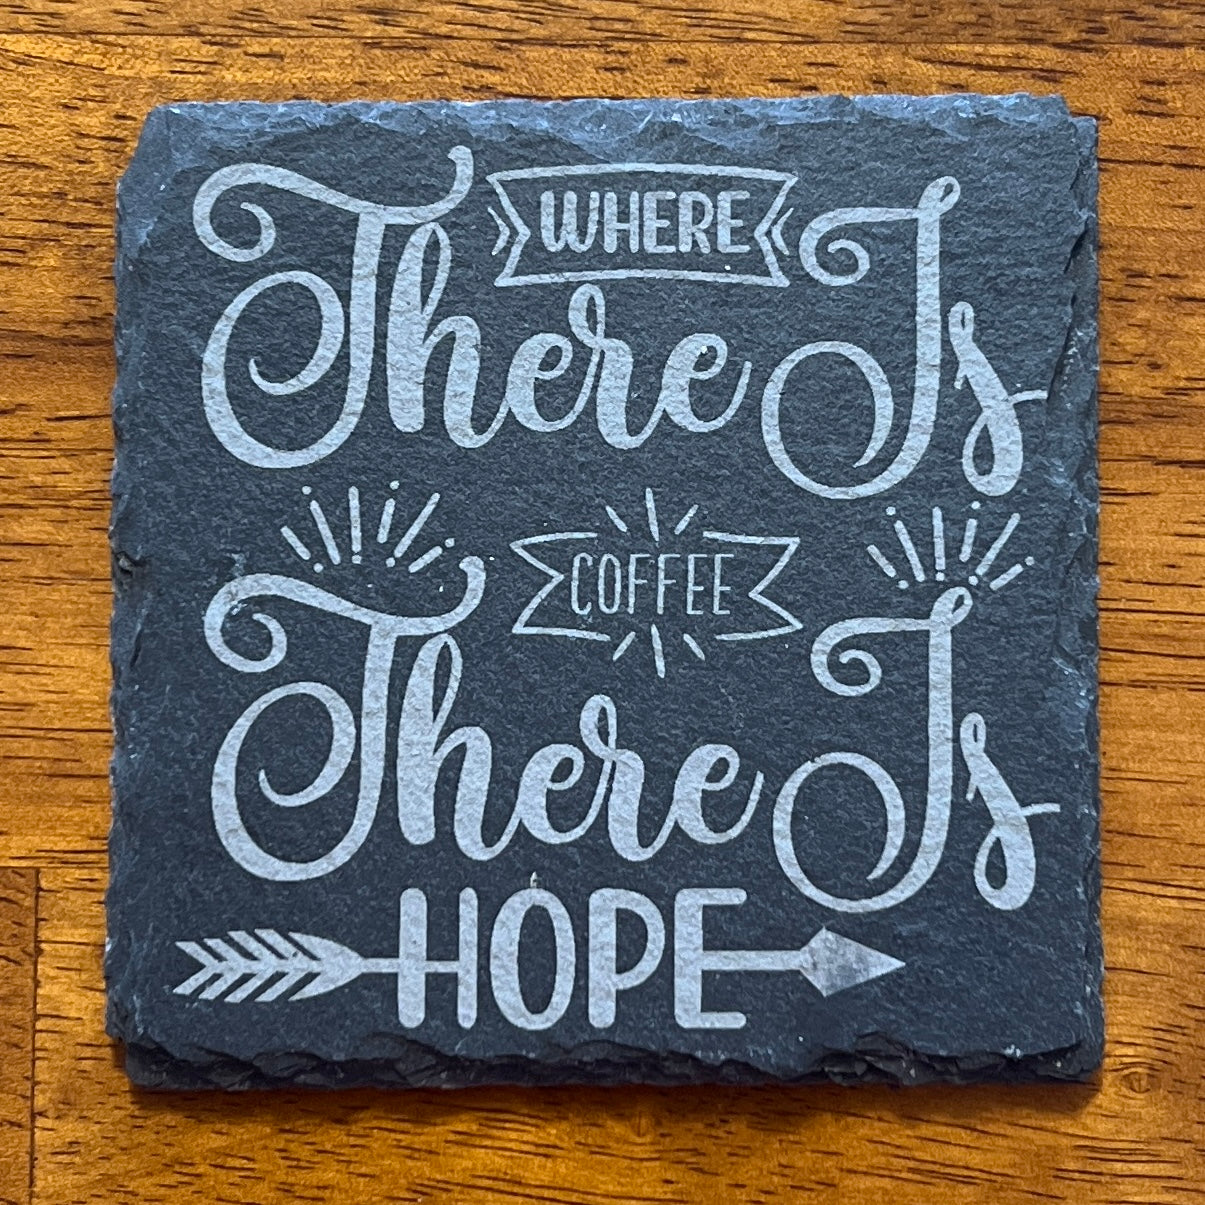 WHERE
There Is
COFFEE
There Is
HOPE